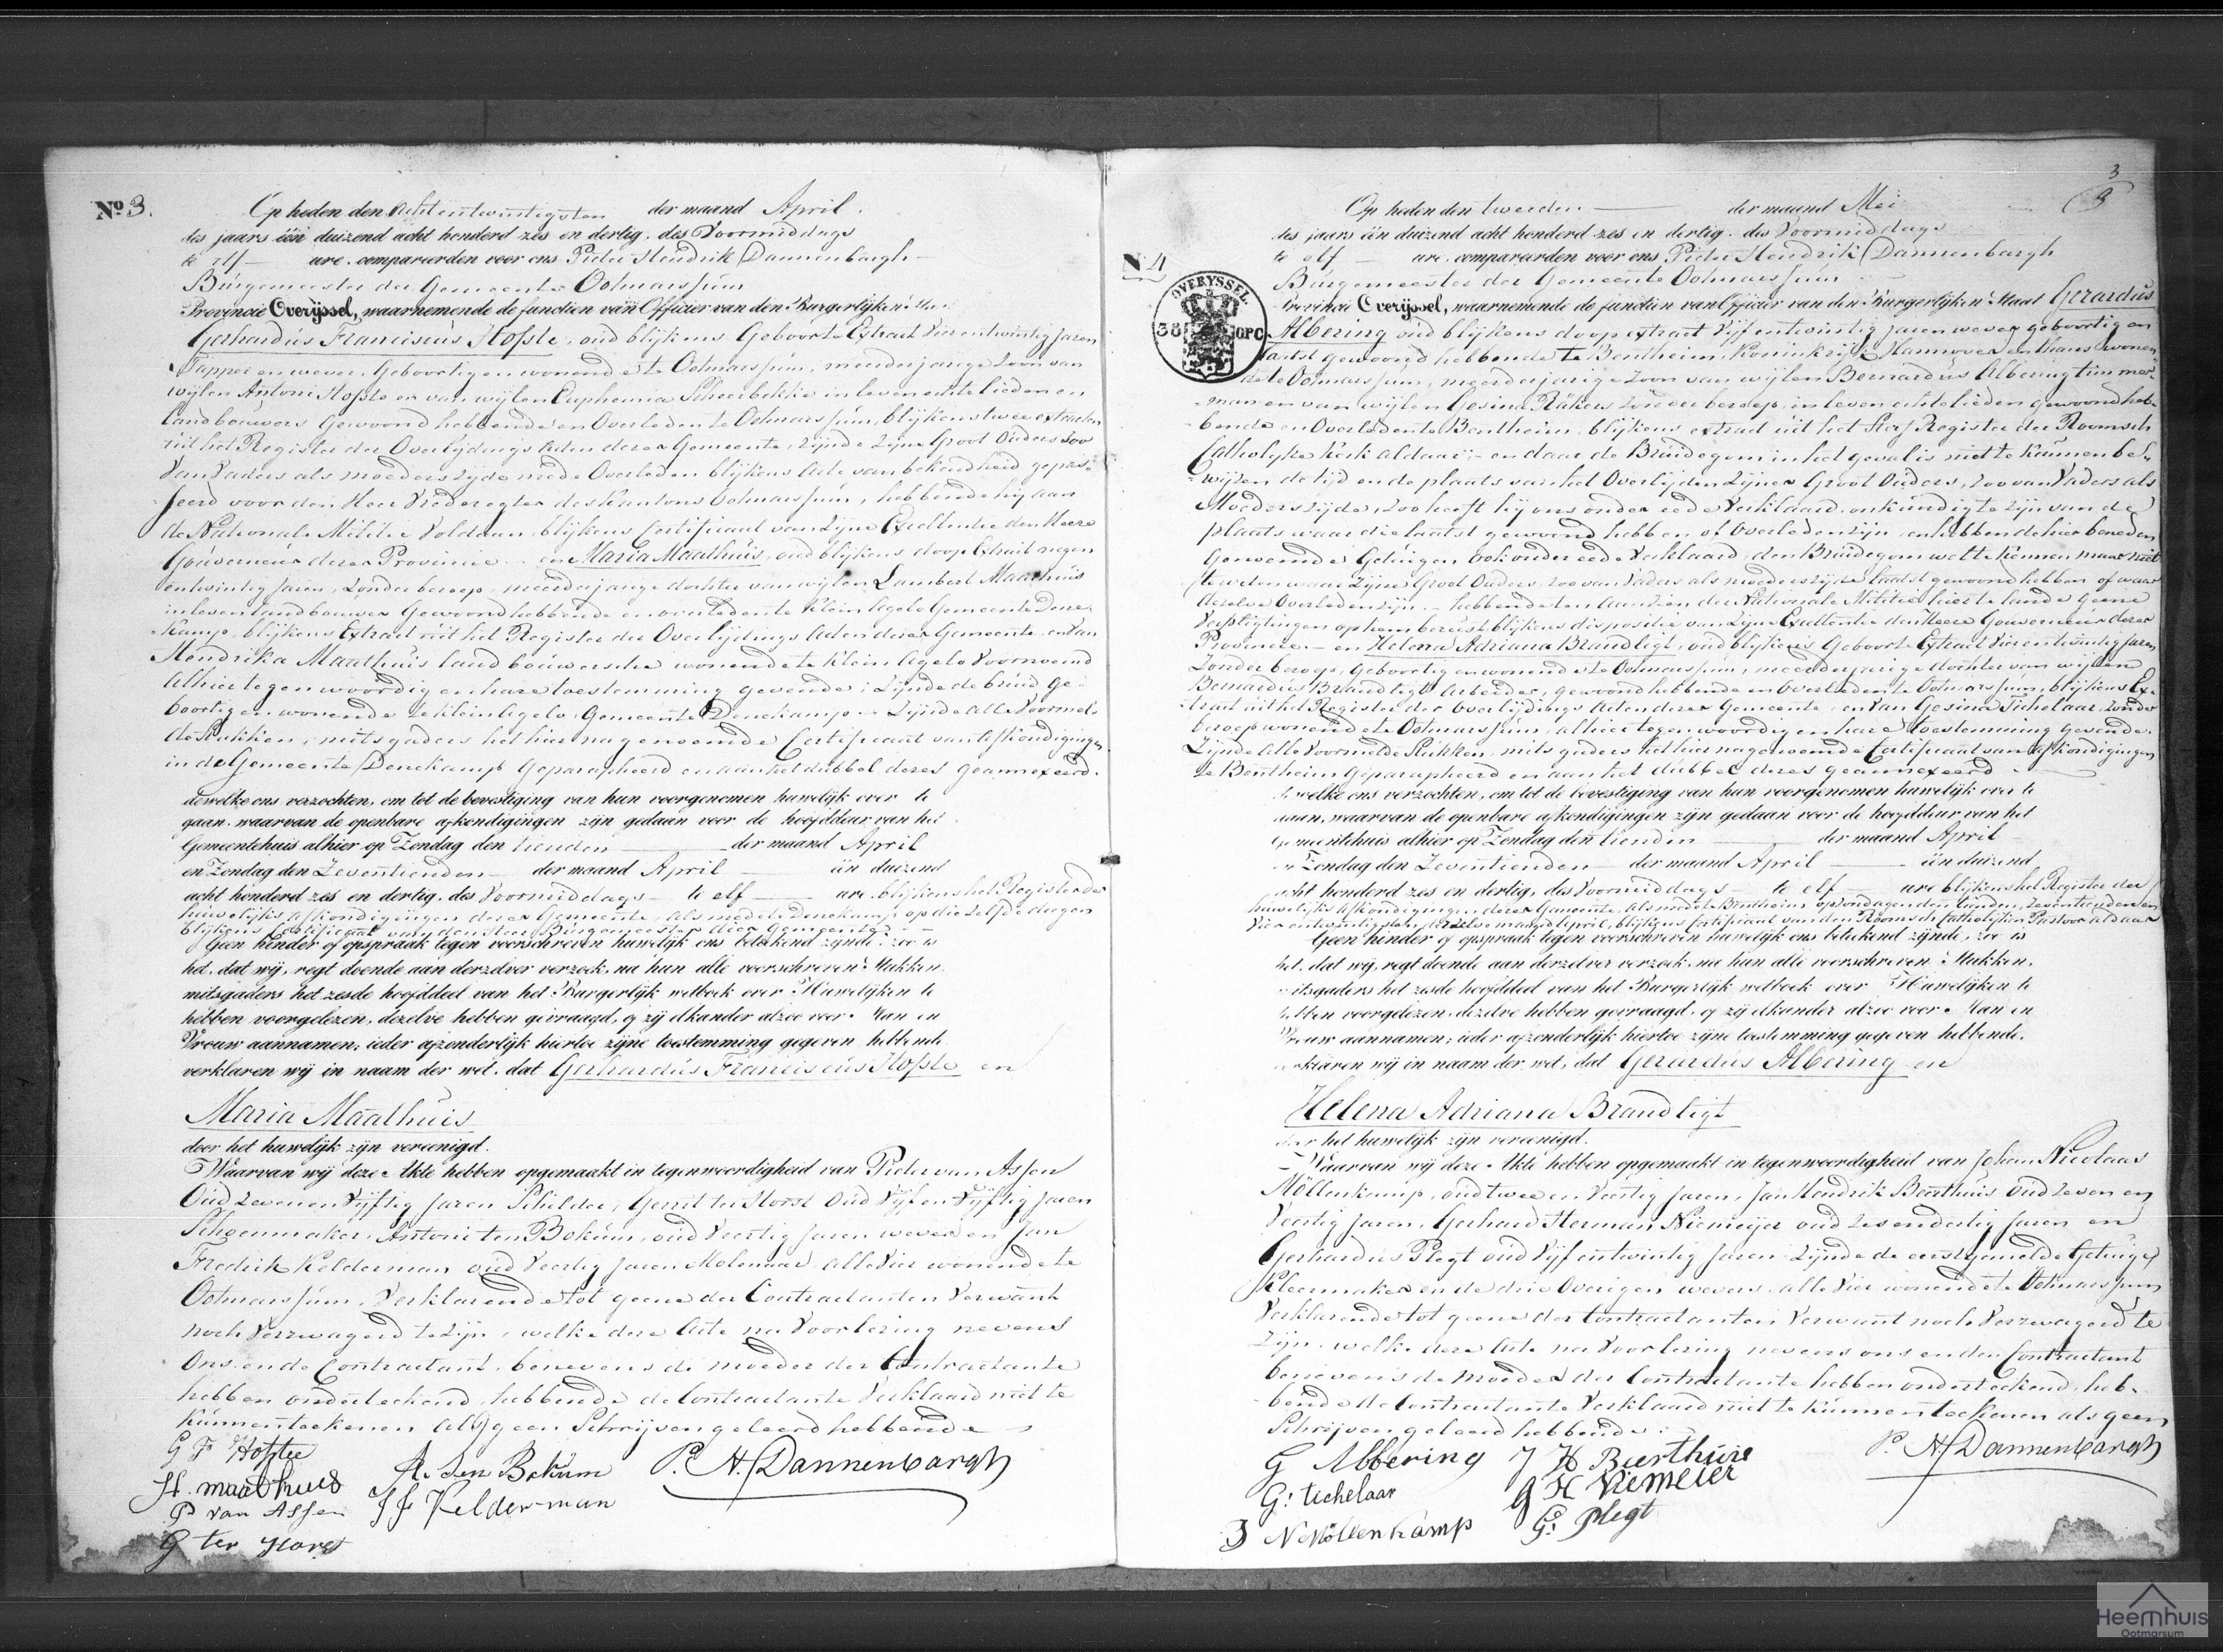 Nº 3.
Op heden den Achtentwintigsten der maand April.
des jaars één duizend acht honderd zes en dertig, des Voormiddags
te elf ure, compareerden voor ons Pieter Hendrik Dannenbargh
Burgemeester der Gemeente Ootmarssum
Provincie Overijssel, waarnemende de functien van Officier van den Burgerlijken
Gerhardus Franciscus Hofste, oud blijkens Geboorte Extract Vier entwintig Jaren
Tapper en wever, Geboortig en wonende te Ootmarssum, meerderjarige Zoon van
wijlen Antoni Hofste en van wijlen Euphemia Scheerbekke in leven echtelieden en
landbouwers Gewoond hebbende en Overleden te Ootmarssum, blijkens twee extracten
uit het Register der Overlijdings Acten dezer Gemeente, zijnde zijne Groot Ouders zoo
Van Vaders als moeders zijde mede Overleden blijkens Acte van bekendheid gepas-
seerd voor den Heer Vrederegter des Kantons Ootmarssum, hebbende hij aan
de Nationale Militie Voldaan, blijkens Certificaat van Zijne Excellentie den Heere
Gouverneur dezer Provincie en Maria Maathuis, oud blijkens doop Extract negen
entwintig Jaren, Zonder beroep, meerderjarige dochter van wijlen Lambert Maathuis
in leven landbouwer Gewoond hebbende en overleden te Klein Agelo Gemeente Dene-
kamp, blijkens Extract uit het Register der Overlijdings Acten dezer Gemeente, en van
Hendrika Maathuis landbouwersche wonende te Klein Agelo Voornoemd
Alhier tegenwoordig en hare toestemming gevende; Zijnde de bruid Ge-
boortig en wonende te Klein Agelo, Gemeente Denekamp - Zijnde Alle Voormel-
de Stukken, mitsgaders het hier na genoemde Certificaat van Afkondigingen
in de Gemeente Denekamp Geparapheerd en aan het dubbel dezes geannexeerd.
dewelke ons verzochten, om tot de bevestiging van hun voorgenomen huwelijk over te
gaan, waarvan de openbare afkondigingen zijn gedaan voor de hoofddeur van het
Gemeentehuis alhier op Zondag den tienden der maand April
en Zondag den Zeventienden der maand April één duizend
acht honderd zes en dertig, des Voormiddags te elf ure, blijkens het Register der
huwelijks Afkondigingen dezer Gemeente, Als mede te Denekamp op die zelfde dagen
blijkens Certificaat van den Heer Burgemeester dier Gemeente
Geen hinder of opspraak tegen voorschreven huwelijk ons bekend zijnde, zoo is
het, dat wij, regt doende aan derzelver verzoek, na hun alle voorschreven Stukken,
mitsgaders het zesde hoofddeel van het Burgerlijk wetboek over Huwelijken te
hebben voorgelezen, dezelve hebben gevraagd, of zij elkander alzoo voor Man en
Vrouw aannamen; ieder afzonderlijk hiertoe zijne toestemming gegeven hebbende
verklaren wij in naam der wet, dat Gerhardus Franciscus Hofste en
Maria Maathuis
door het huwelijk zijn vereenigd.
Waarvan wij deze Akte hebben opgemaakt in tegenwoordigheid van Pieter van Assen
Oud Zeven en Vijftig Jaren Schilder, Gerrit ter Horst Oud Vijf en Vijftig Jaren
Schoenmaker, Antoni ten Bokum, oud Veertig Jaren wever en Jan
Fredrik Kelderman oud Veertig Jaren Molenaar alle Vier wonende te
Ootmarssum, Verklarende tot geene der Contractanten Verwant
noch Verzwagerd te zijn, welke deze Acte na Voorlezing nevens
Ons en de Contractant, benevens de moeder der Contractante
hebben onderteekend, hebbende de Contractante Verklaard niet te
Kunnen teekenen als geen Schrijven geleerd hebbende
G F Hofste
H. maathues
P van Assen
G ter Horst
A. ten Bokum
J F Kelderman
P. H. Dannenbargh
3
3
N 4
OVERYSSEL.
38 OPC
Op heden den tweeden der maand Mei
des jaars één duizend acht honderd zes en dertig, des Voormiddags
te elf ure, compareerden voor ons Pieter Hendrik Dannenbargh
Burgemeester der Gemeente Ootmarssum
Provincie Overijssel, waarnemende de functien van Officier van den Burgerlijken Staat Gerardus
Albering oud blijkens doop extract Vijf entwintig Jaren wever geboortig en
laatst gewoond hebbende te Bentheim, Koninkrijk Hannover en thans wonen-
de te Ootmarssum, meerderjarige Zoon van wijlen Bernardus Albering timmer-
man en van wijlen Gesina Rükers Zonder beroep, in leven echtelieden gewoond heb-
bende en Overleden te Bentheim, blijkens extract uit het Sterf Register der Roomsch
Catholyke Kerk aldaar, en daar de Bruidegom in het geval is niet te kunnen be-
wijzen de tijd en de plaats van het Overlijden zijner Groot Ouders, zoo van Vaders als
Moeders zijde, zoo heeft hij ons onder eede Verklaard, onkundig te zijn van de
plaats waar die laatst gewoond hebben of Overleden zijn, en hebbende hier beneden
Genoemde Getuigen, ook onder eede Verklaard, den Bruidegom wel te kennen maar niet
te weten waar zijne Groot Ouders zoo van Vaders als moeders zijde laatst gewoond hebben of waar
dezelve Overleden zijn, hebbende ten aanzien der Nationale Militie hier te lande geene
Verpligtingen op hem berust, blijkens dispositie van zijne Excellentie den Heere Gouverneur dezer
Provincie. - en Helena Adriana Brandligt, oud blijkens Geboorte Extract Vier entwintig Jaren
Zonder beroep, Geboortig en wonende te Ootmarssum, meerderjarige dochter van wijlen
Bernardus Brandligt Arbeider, gewoond hebbende en Overleden te Ootmarssum, blijkens Ex-
tract uit het Register der Overlijdings Acten dezer Gemeente, en van Gesina Tichelaar, zonder
beroep wonende te Ootmarssum, alhier tegenwoordig en hare toestemming gevende.
Zijnde Alle Voormelde Stukken, mitsgaders het hier nagenoemde Certificaat van afkondigingen
te Bentheim Geparapheerd en aan het dubbel dezes geannexeerd
welke ons verzochten, om tot de bevestiging van hun voorgenomen huwelijk over te
gaan, waarvan de openbare afkondigingen zijn gedaan voor de hoofddeur van het
Gemeentehuis alhier op Zondag den tienden der maand April
en Zondag den Zeventienden der maand April één duizend
acht honderd zes en dertig, des Voormiddags te elf ure blijkens het Register der
huwelijks Afkondigingen dezer Gemeente, Als mede te Bentheim op Zondagen den tienden, zeventienden en
Vier entwintigsten derzelve maand April, blijkens Certificaat van den Roomsch Catholijken Pastoor aldaar
Geen hinder of opspraak tegen voorschreven huwelijk ons bekend zijnde, zoo is
het, dat wij, regt doende aan derzelver verzoek, na hun alle voorschreven Stukken,
mitsgaders het zesde hoofddeel van het Burgerlijk wetboek over Huwelijken te
hebben voorgelezen, dezelve hebben gevraagd, of zij elkander alzoo voor Man en
Vrouw aannamen; ieder afzonderlijk hiertoe zijne toestemming gegeven hebbende,
verklaren wij in naam der wet, dat Gerardus Albering en
Helena Adriana Brandligt
door het huwelijk zijn vereenigd.
Waarvan wij deze Akte hebben opgemaakt in tegenwoordigheid van Johan Nicolaas
Möllenkamp, oud twee en Veertig Jaren, Jan Hendrik Beerthuis Oud Zeven en
Veertig Jaren, Gerhard Herman Niemeijer oud Zes en dertig Jaren en
Gerhardus Plegt oud Vijf entwintig Jaren Zijnde de eerstgemelde Getuige
Kleermaker en de drie Overigen wevers, alle Vier wonende te Ootmarssum
Verklarende tot geene der Contractanten Verwant noch Verzwagerd te
zijn, welke deze Acte na Voorlezing nevens ons en den Contractant
benevens de Moeder der Contractante hebben onderteekend, heb-
bende de Contractante Verklaard niet te kunnen teekenen als geen
Schrijven geleerd hebbende.
G Albering
G: tichelaar
J N Möllenkamp
J H Beerthuis
G H Niemeier
G: Plegt
P. H. Dannenbargh
Heemhuis
Ootmarsum